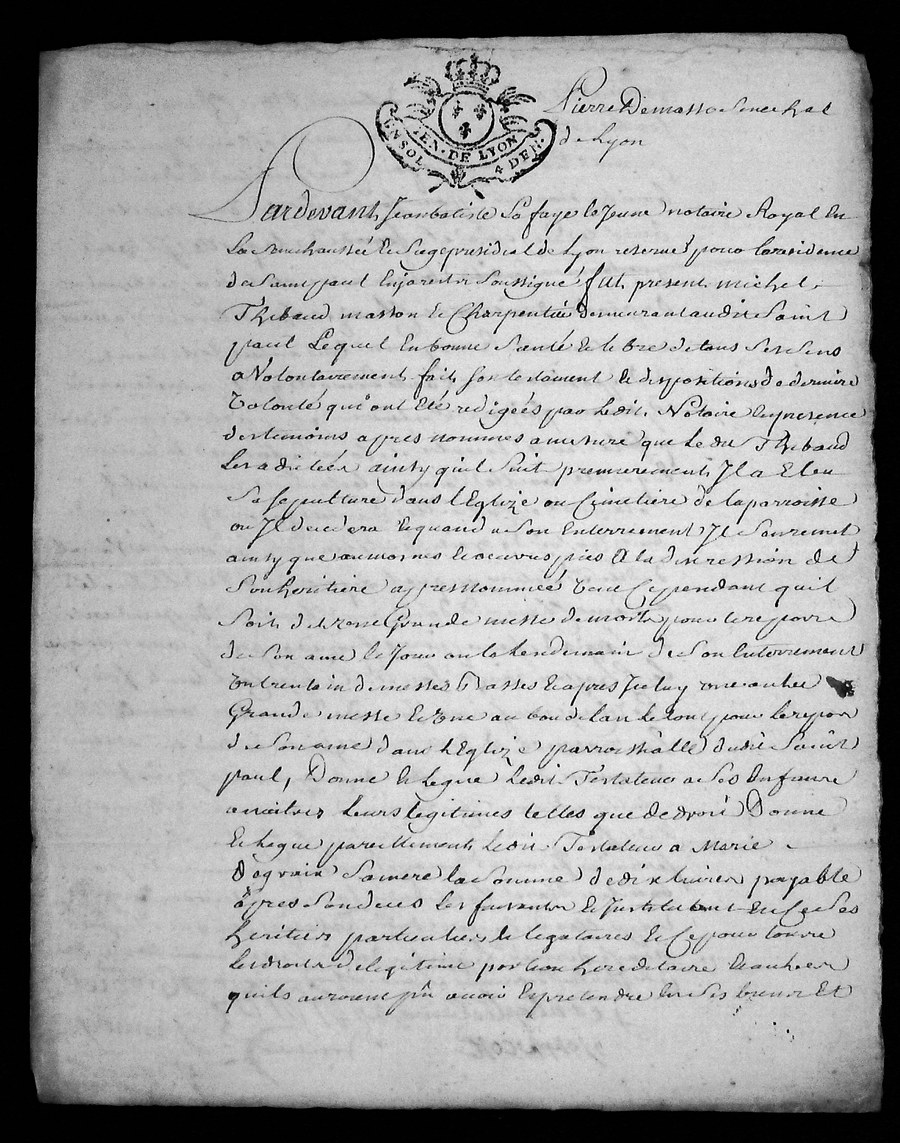 Pierre Demasso Senechal
de Lyon
GEN. DE LYON
UN SOL 4 DEN.
Pardevant Jean batiste La faye le Jeune notaire Royal En
La Senechaussée & Siege presidial de Lyon reservé pour la residence
de Saint paul Enjarest soussigné fut present michel
Thibaud masson & Charpentier demeurant audit Saint
paul Lequel En bonne Santé & libre de tous Ses Sens
a Volontairement fait son testament & dispositions de derniere
Volonté qui ont Eté redigées par ledit Notaire En presence
des temoins apres nommés a mesure que le dit Thibaud
Les a dictées ainsy quil Suit premierement Il a Eleu
Sa sepulture dans l'Eglize ou Cimetiere de la parroisse
ou Il decedera Equand a Son Enterrement Il Sen remet
ainsy que aumosnes & oeuvres pies a la discression de
Son heritiere apres nommée Veut Cependant quil
Soit dit une Grande messe de morts pour le repos
de Son ame le Jour ou le lendemain de Son Enterrement
un trentain de messes Basses & apres Iceluy une autre
Grande messe & une au bout de lan le tout pour le repos
de Son ame dans l'Eglize parroissialle dudit Saint
paul, Donne & legue Ledit Testateur a Ses Enfans
a naitre leurs legitimes telles que de droit Donne
& legue pareillement Ledit Testateur a Marie
Sa mere la Somme de dix livres payable
apres Son deces les faisant & Instituant Ses
heritiers particuliers & legataires & Ce pour tous
les droits de legitime portion hereditaire & autres
quils auroient pu avoir & pretendre En Ses biens Et